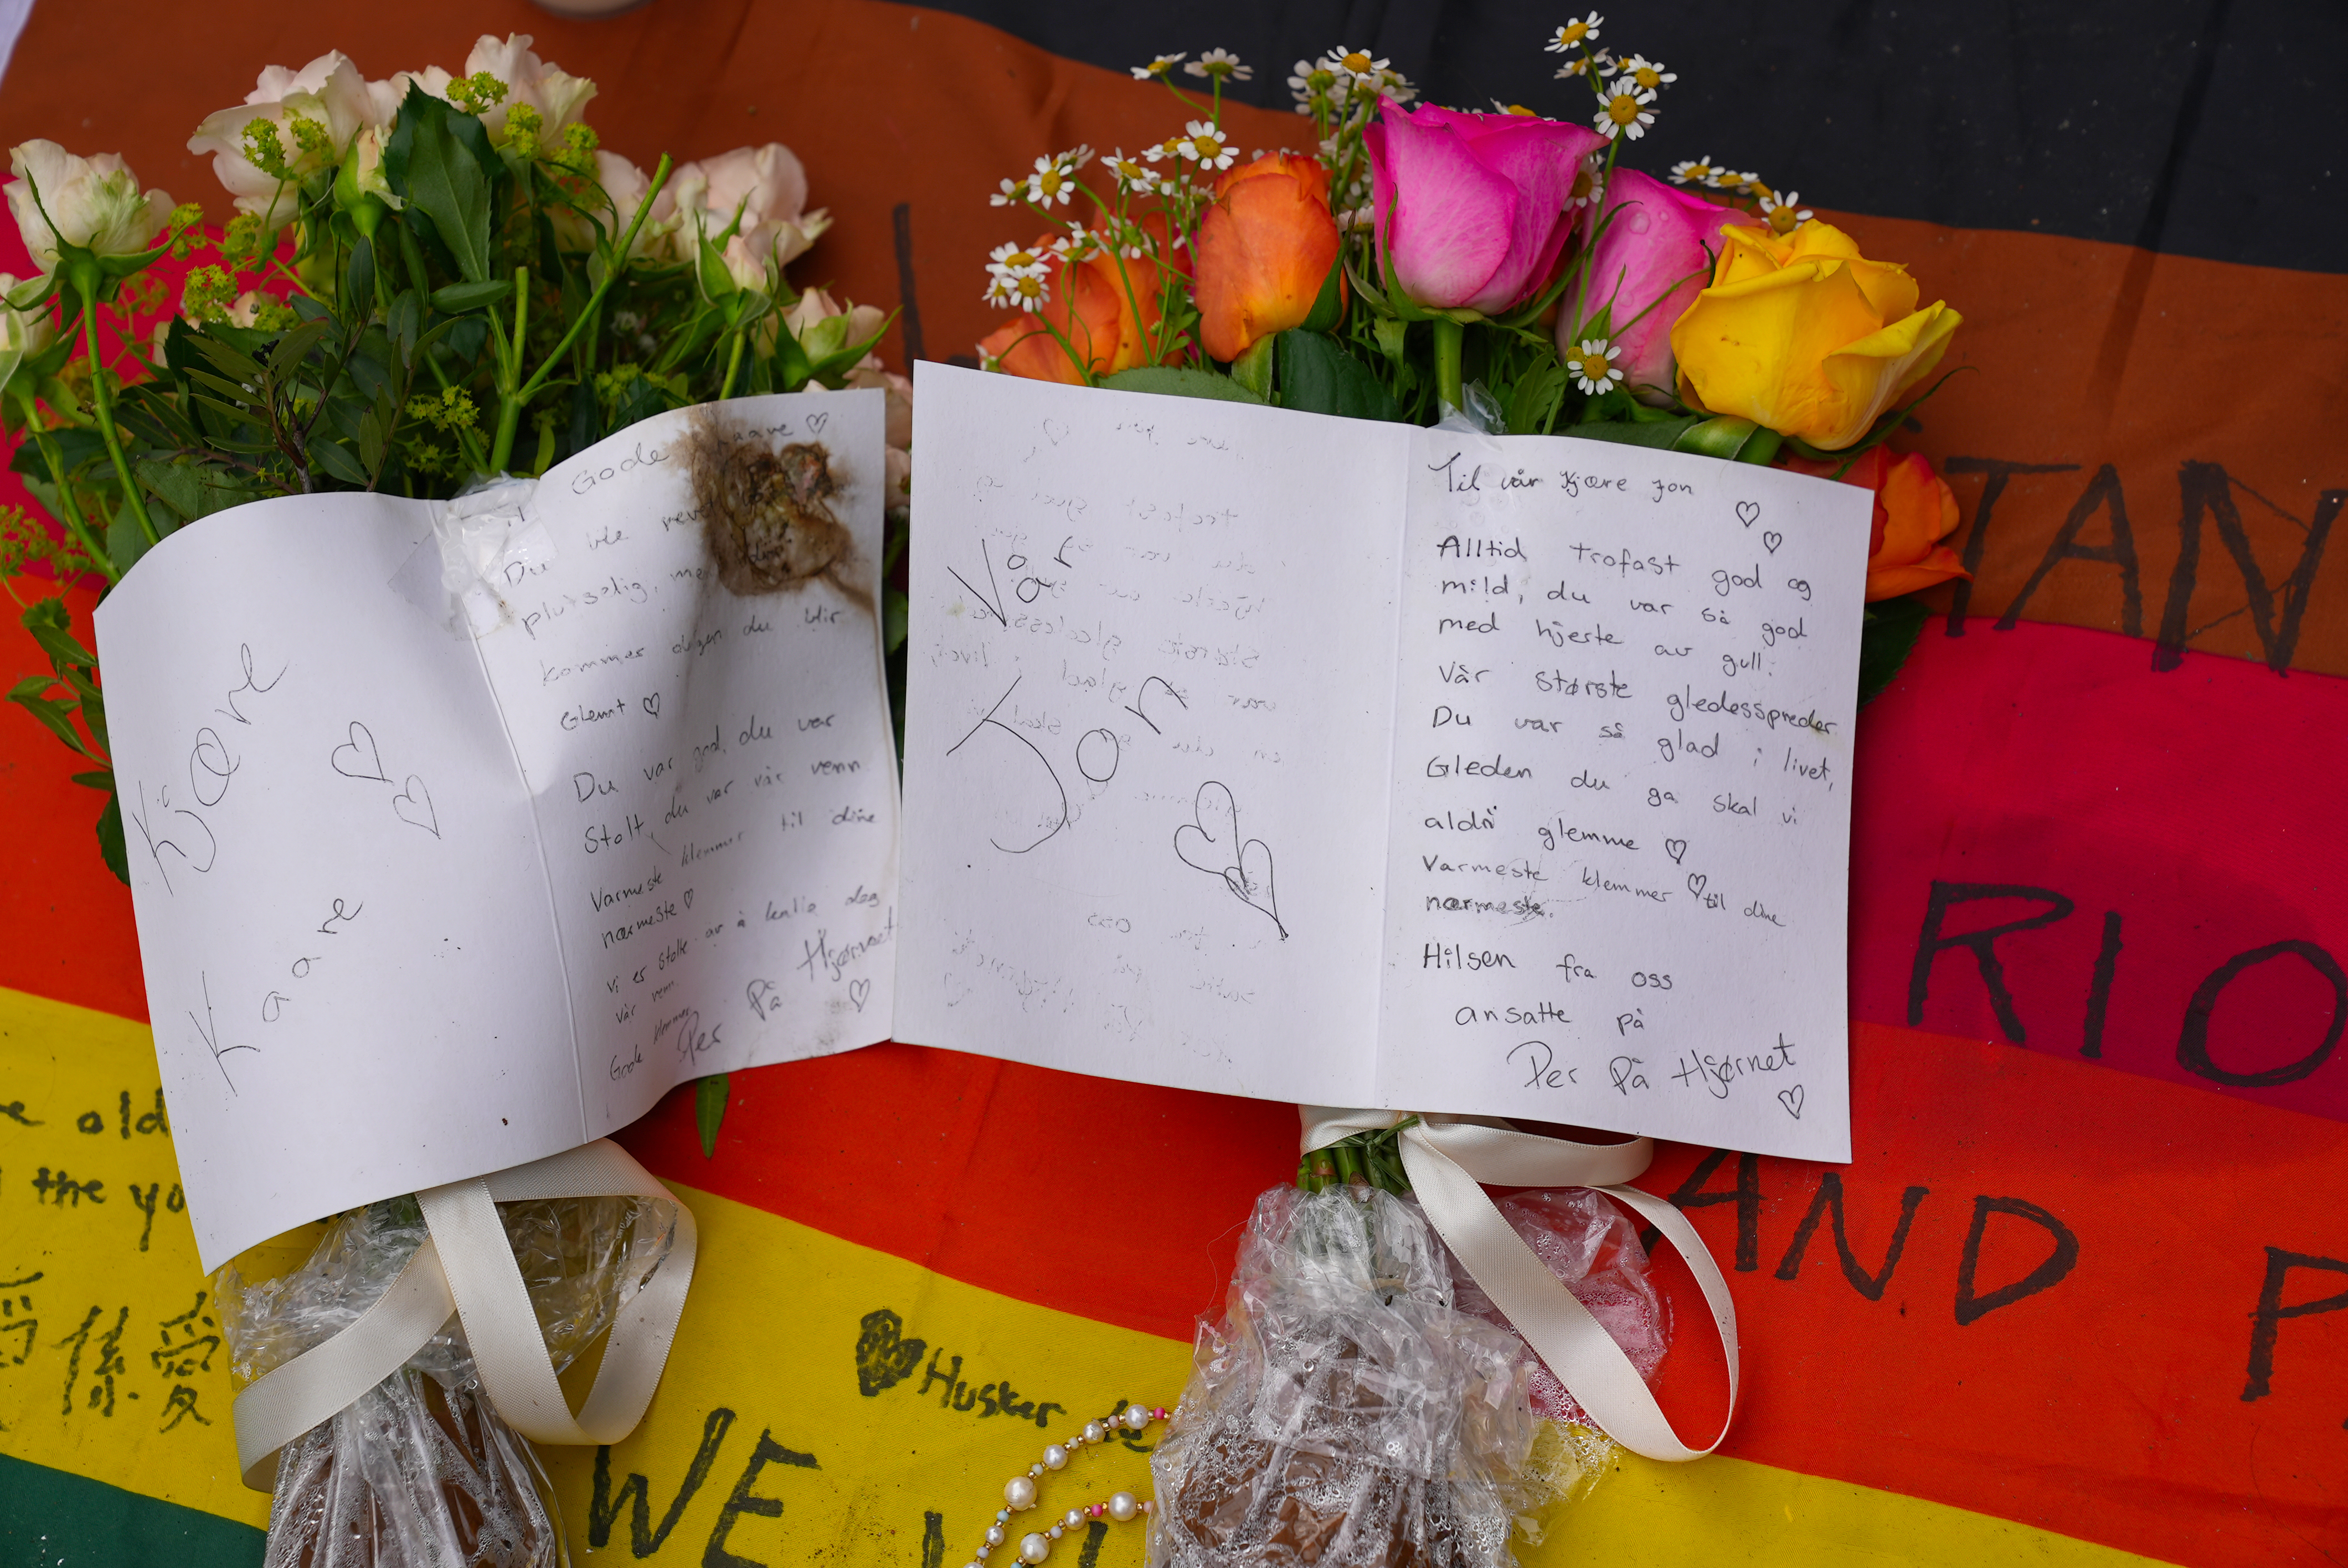 Kjære
Kaare
Til Gode Kaare ♡
Du ble rev
plutselig, me
Kommer dagen du blir
Glemt ♡
Du var god, du var
Stolt, du var vår venn
Varmeste klemmer til dine
nærmeste ♡
vi er stolte av å kalle deg
vår venn.
Gode klemmer
Per På Hjørnet
♡
Vår
Jon
Til vår Kjære Jon
♡
♡
Alltid trofast god og
mild, du var så god
med hjerte av gull.
Vår største gledesspreder
Du var så glad i livet,
Gleden du ga skal vi
aldri glemme ♡
Varmeste klemmer ♡ til dine
nærmeste.
Hilsen fra oss
ansatte på
Per På Hjørnet
♡
TAN
RIO
AND P
old
the yo
係愛
♥ Husker
WE